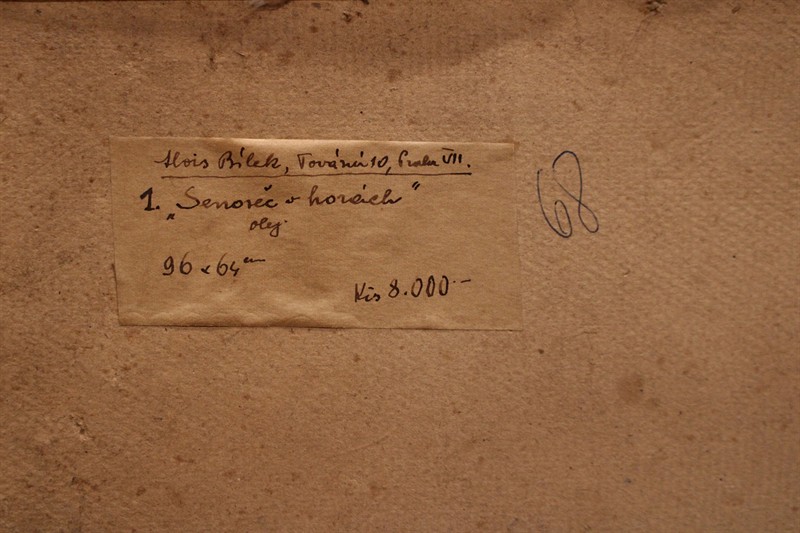 Alois Bílek, Tovární 10, Praha VII.
1. „Senoseč v horách"
olej.
96 x 64 cm
Kčs 8.000.-
68